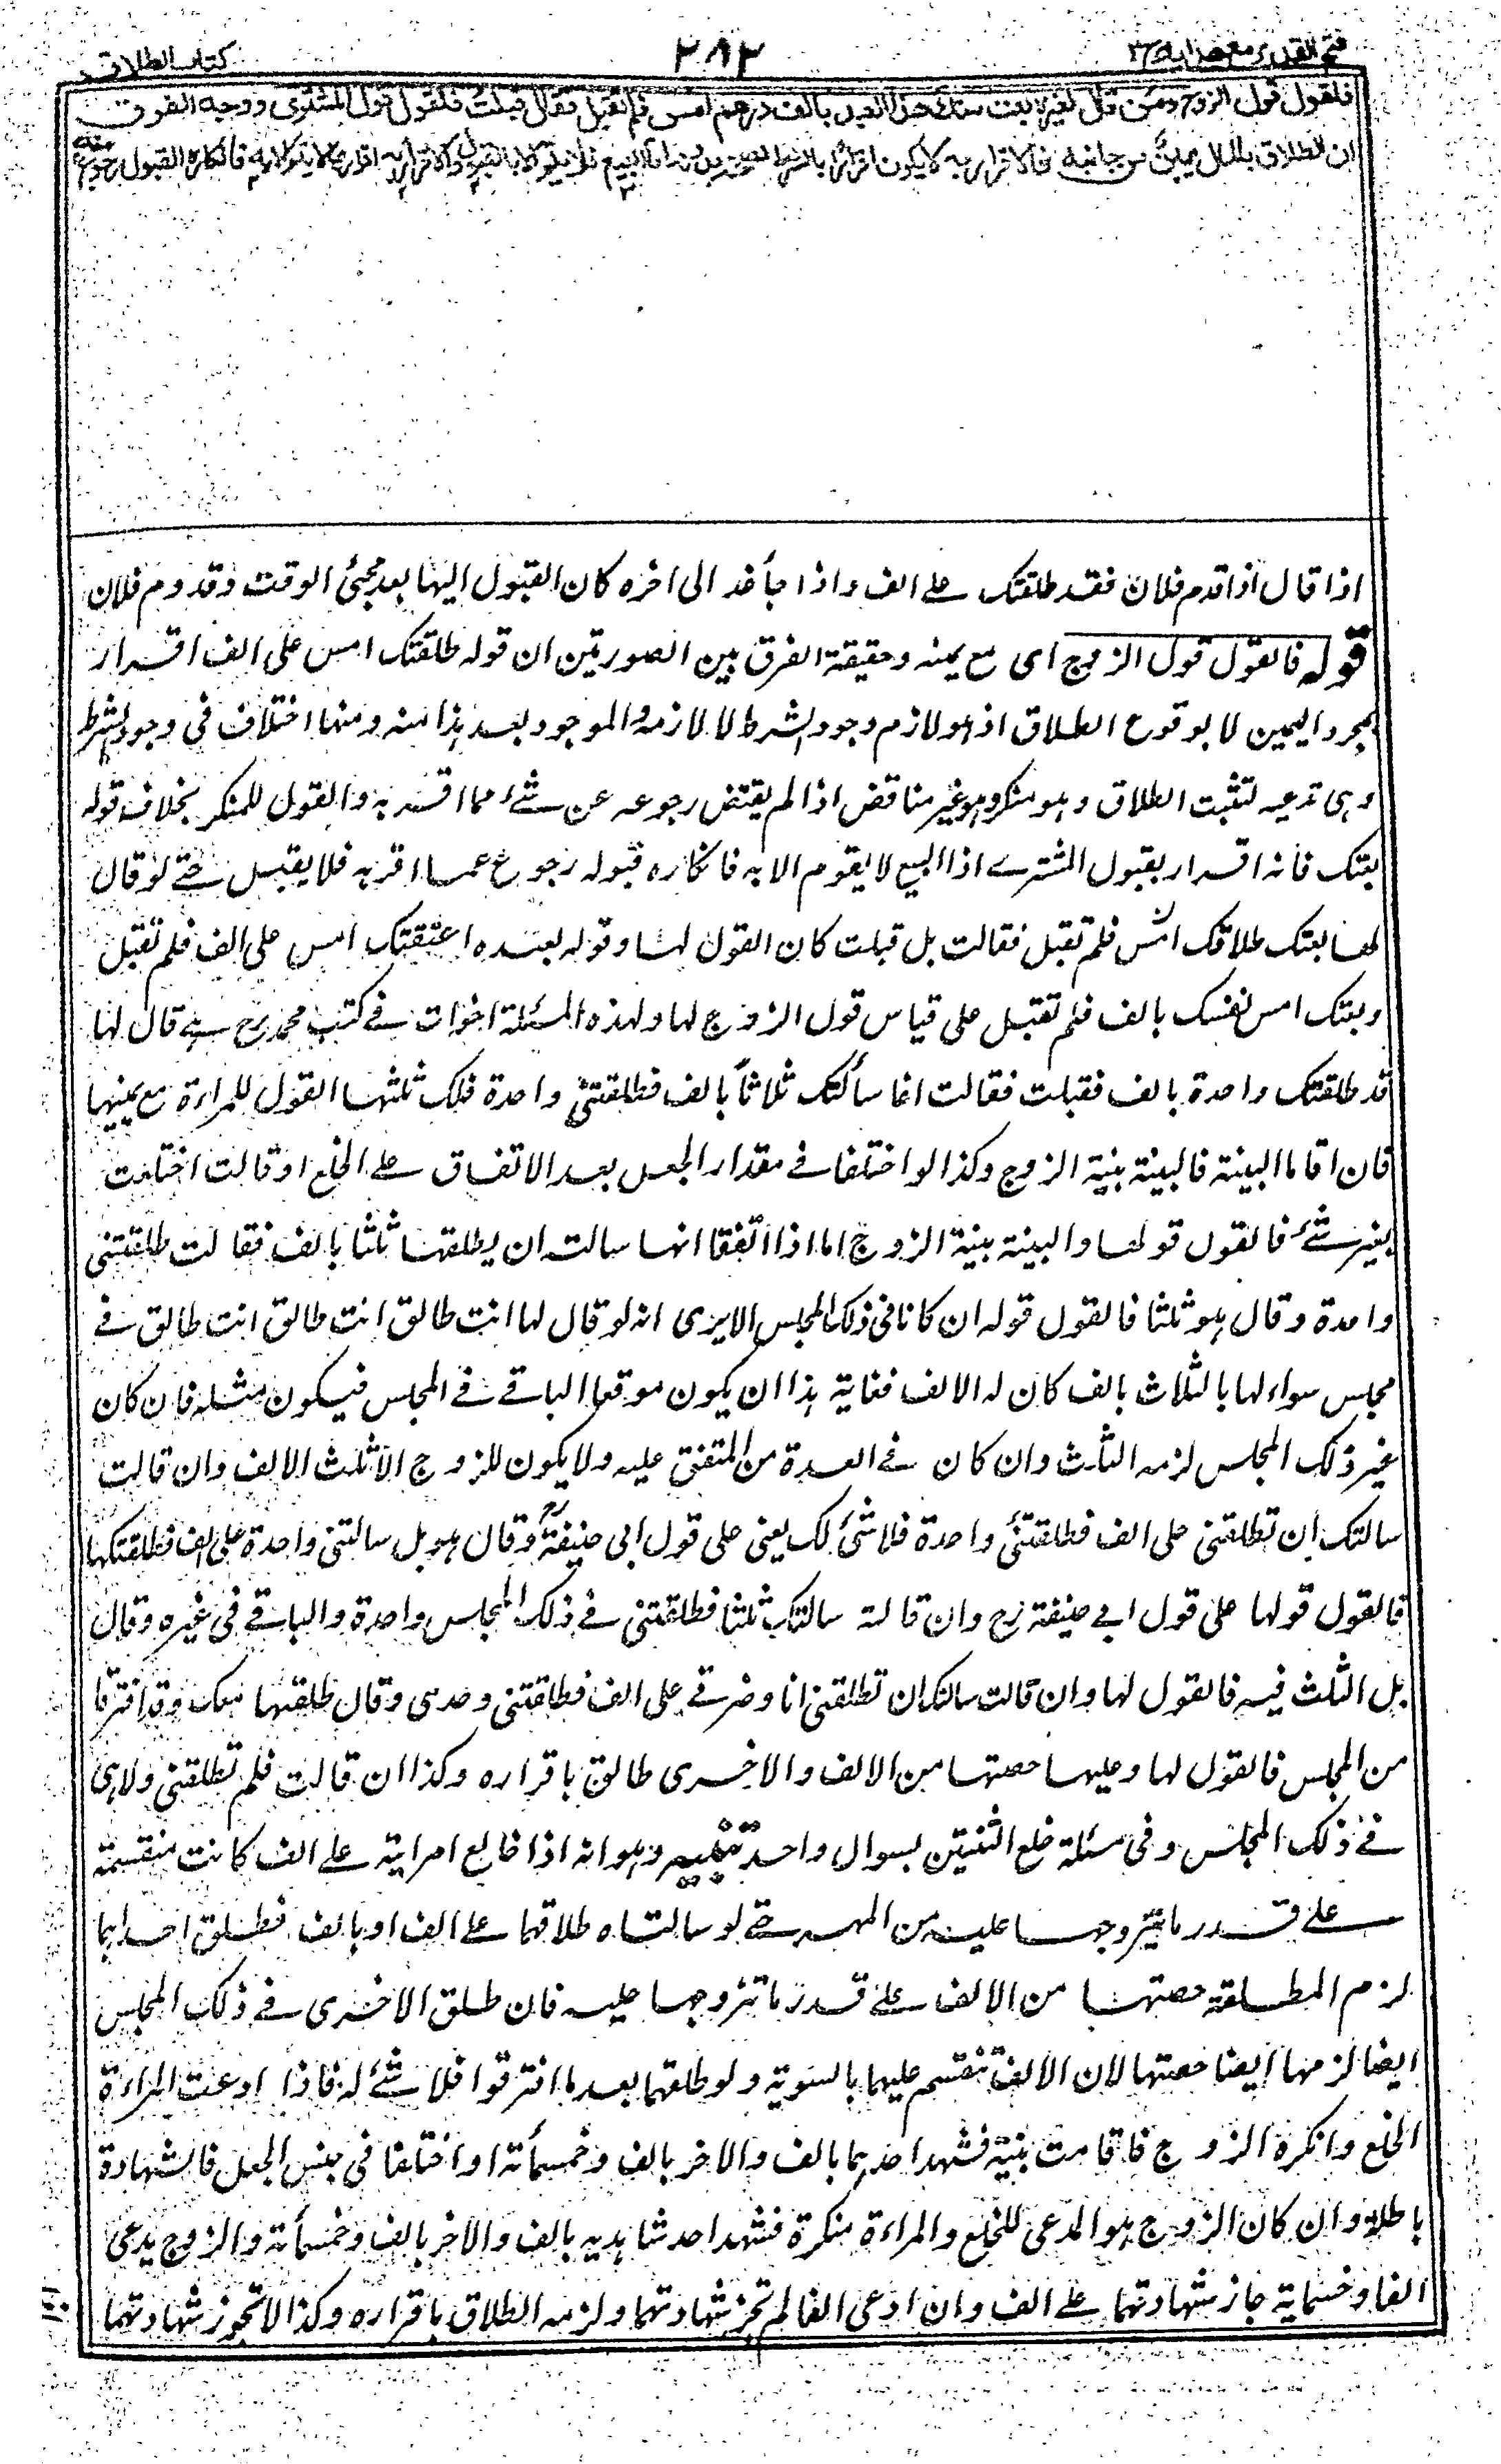 فتح القدير مع هدايه ج٢
٢٨٢
كتاب الطلاق
فالقول قول الزوج ومن قال لغيره بعت منك هذا العبد بالف درهم امس فلم تقبل فقال قبلت فالقول قول المشترى ووجه الفرق
ان الطلاق بالمال يمين من جانبه فالاقرار به لا يكون اقرارا بالشرط لصحته بدونه اما البيع فلا يتم الا بالقبول والاقرار به اقرار بما لا يتم الا به فانكاره القبول رجوع منه
اذا قال اذا قدم فلان فقد طلقتك على الف واذا جاء غد الى اخره كان القبول اليها بعد مجئ الوقت وقدوم فلان
قوله فالقول قول الزوج اى مع يمينه وحقيقة الفرق بين الصورتين ان قوله طلقتك امس على الف اقرار
بمجرد اليمين لا بوقوع الطلاق اذ هو لازم وجود الشرط لا لازمه والموجود بعد هذا منه ومنها اختلاف فى وجود الشرط
وهى تدعيه لتثبت الطلاق وهو منكر وهو غير مناقض اذا لم يقتض رجوعه عن شئ مما اقر به والقول للمنكر بخلاف قوله
بعتك فانه اقرار بقبول المشترے اذ البيع لا يقوم الا به فانكاره قبوله رجوع عما اقر به فلا يقبل حتے لو قال
لها بعتك طلاقك امس فلم تقبل فقالت بل قبلت كان القول لها وقوله لعبده اعتقتك امس على الف فلم تقبل
وبعتك امس نفسك بالف فلم تقبل على قياس قول الزوج لها ولهذه المسئلة اخوات فے كتب محمد رح هے قال لها
قد طلقتك واحدة بالف فقبلت فقالت انما سألتك ثلاثاً بالف فطلقتنى واحدة فلك ثلثها القول للمراءة مع يمينها
فان اقاما البينة فالبينة بنية الزوج وكذا لو اختلفا فے مقدار الجعل بعد الاتفاق علے الخلع او قالت اختلعت
بغير شئ فالقول قولها والبينة بينة الزوج اما اذا اتفقا انها سالته ان يطلقها ثلثا بالف فقالت طلقتنى
واحدة وقال هو ثلثا فالقول قوله ان كانا فى ذلك المجلس الا يرى انه لو قال لها انت طالق انت طالق انت طالق فے
مجلس سواء لها بالثلاث بالف كان له الالف فغاية هذا ان يكون موقعا الباقے فے المجلس فيكون مثله فان كان
غير ذلك المجلس لزمه الثلث وان كان فے العدة من المتفق عليه ولا يكون للزوج الا ثلث الالف وان قالت
سالتك ان تطلقنى على الف فطلقتنى واحدة فلا شئ لك يعنى على قول ابى حنيفة رح وقال هو بل سالتنى واحدة على الف فطلقتكها
فالقول قولها على قول ابے حنيفة رح وان قالت سالتك ثلثا فطلقتنى فے ذلك المجلس واحدة والباقے فى غيره وقال
بل الثلث فيه فالقول لها وان قالت سالتك ان تطلقنى انا وضرتے على الف فطلقتنى وحدى وقال طلقتها معك وقد افترقا
من المجلس فالقول لها وعليها حصتها من الالف والاخرى طالق باقراره وكذا ان قالت فلم تطلقنى ولا هى
فے ذلك المجلس وفى مسئلة خلع اثنتين بسوال واحد تتميم وهو انه اذا خالع امراتيه علے الف كانت منقسمة
علے قدر ما تزوجها عليه من المهر حتے لو سالتاه طلاقهما علے الف او بالف فطلق احداهما
لزم المطلقة حصتها من الالف علے قدر ما تزوجها عليه فان طلق الاخرى فے ذلك المجلس
ايضا لزمها ايضا حصتها لان الالف تنقسم عليهما بالسوية ولو طلقهما بعد ما افترقوا فلا شئ له فاذا ادعت المراءة
الخلع وانكره الزوج فاقامت بنية فشهد احدهما بالف والاخر بالف وخمسمأئة او اختلفا فى جنس الجعل فالشهادة
باطلة وان كان الزوج هو المدعى للخلع والمراءة منكرة فشهد احد شاهديه بالف والاخر بالف وخمسمأئة والزوج يدعى
الفا وخمسماية جاز شهادتهما علے الف وان ادعى الفا لم تجز شهادتهما ولزمه الطلاق باقراره وكذا لا تجوز شهادتهما